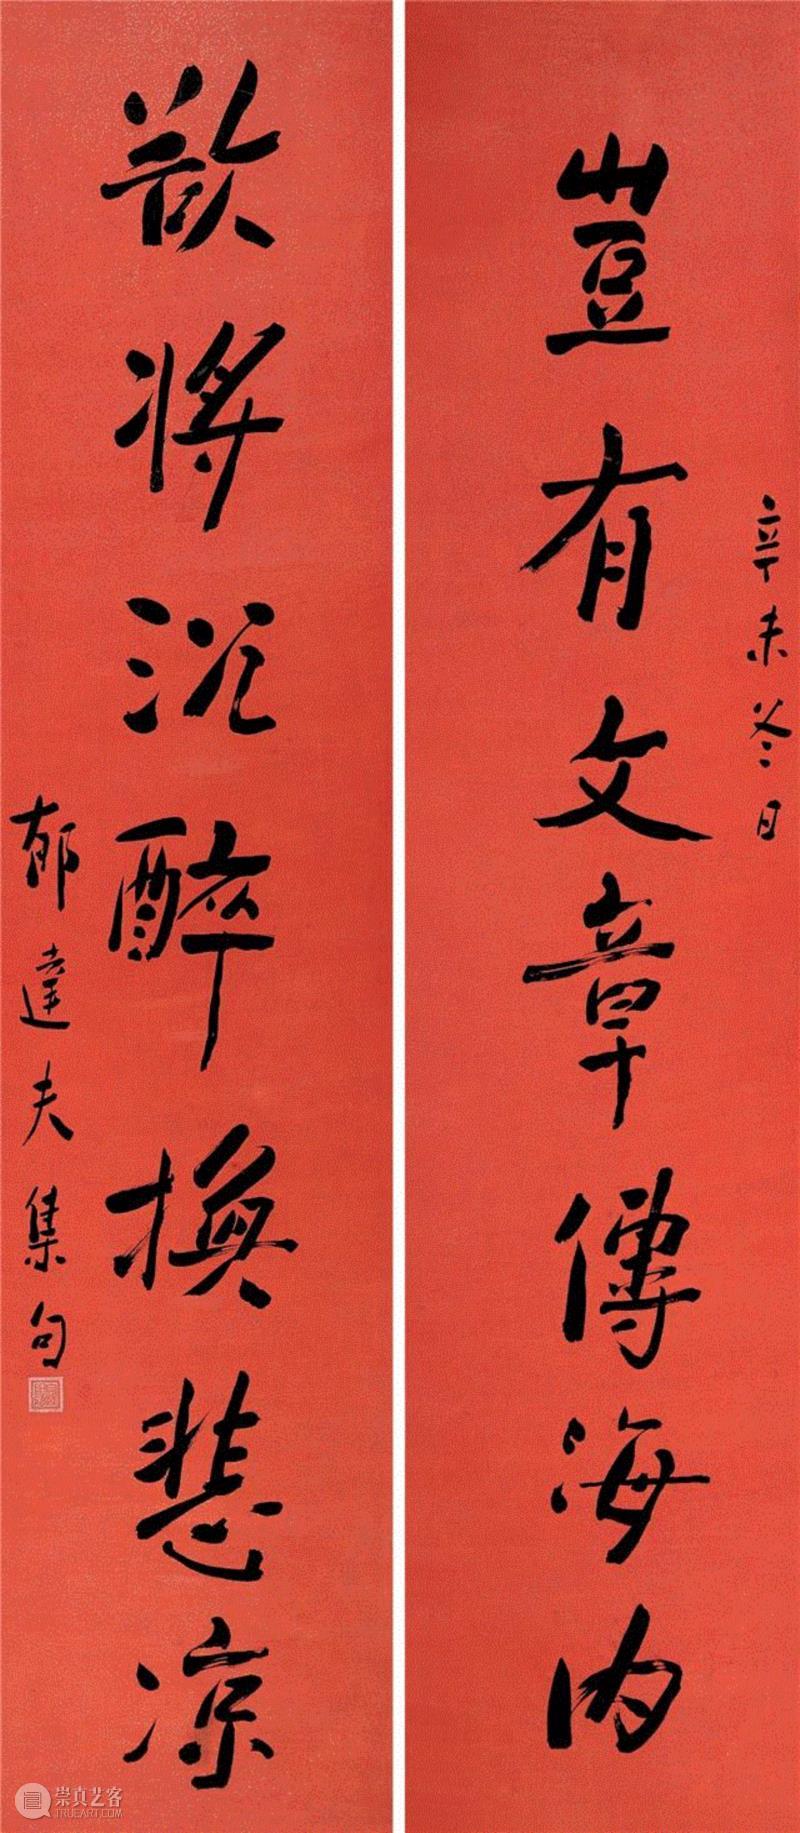 辛未冬日
豈有文章傳海内
欲將沉醉換悲涼
郁達夫集句
崇真艺客
TRUEART.COM